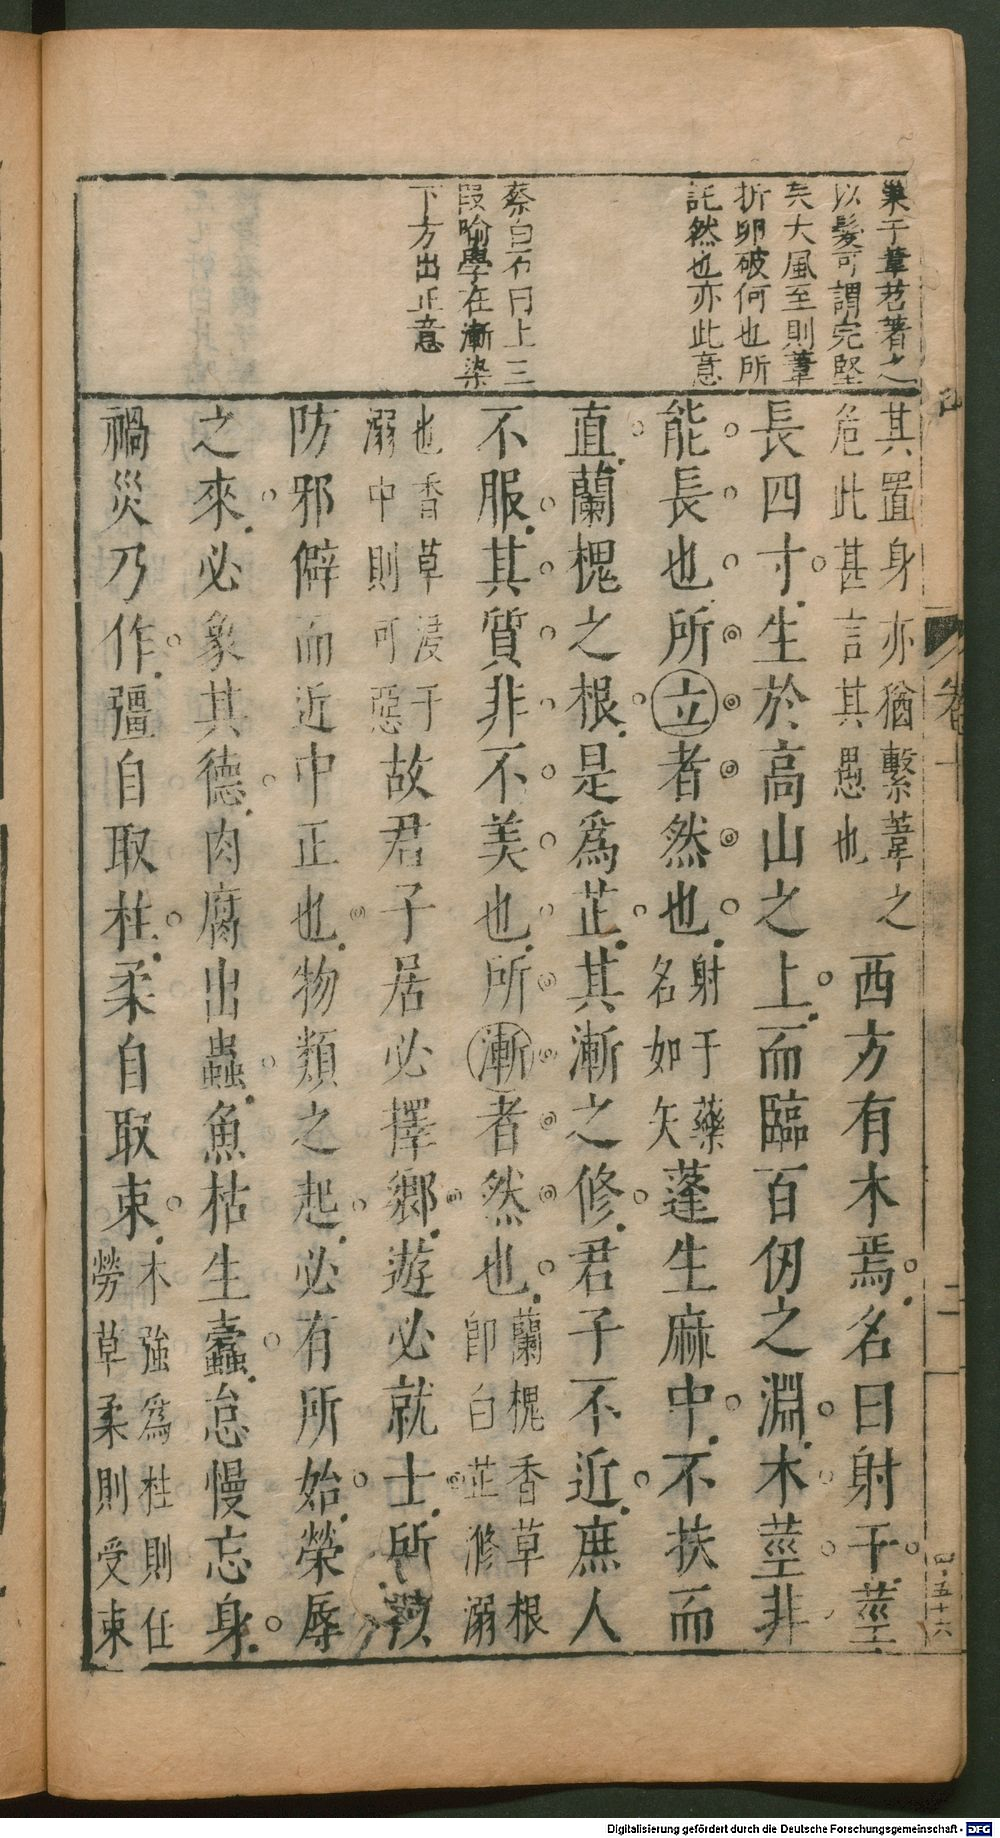 巢于葦苕著之
以髮可謂完堅
矣大風至則葦
折卵破何也所
託然也亦此意
蔡白石曰上三
段喻學在漸染
下方出正意
其置身亦猶繫葦之
危此甚言其愚也
西方有木焉名曰射干莖
長四寸生於高山之上而臨百仞之淵木莖非
能長也所立者然也
射干藥
名如矢
蓬生麻中不扶而
直蘭槐之根是爲芷其漸之修君子不近庶人
不服其質非不美也所漸者然也
蘭槐香草根
卽白芷滫溺
也香草浸于
溺中則可惡
故君子居必擇鄉遊必就士所
防邪僻而近中正也物類之起必有所始榮辱
之來必象其德肉腐出蟲魚枯生蠹怠慢忘身
禍災乃作彊自取柱柔自取束
木強爲柱則任
勞草柔則受束
卷十
二
四五十六
Digitalisierung gefördert durch die Deutsche Forschungsgemeinschaft - DFG